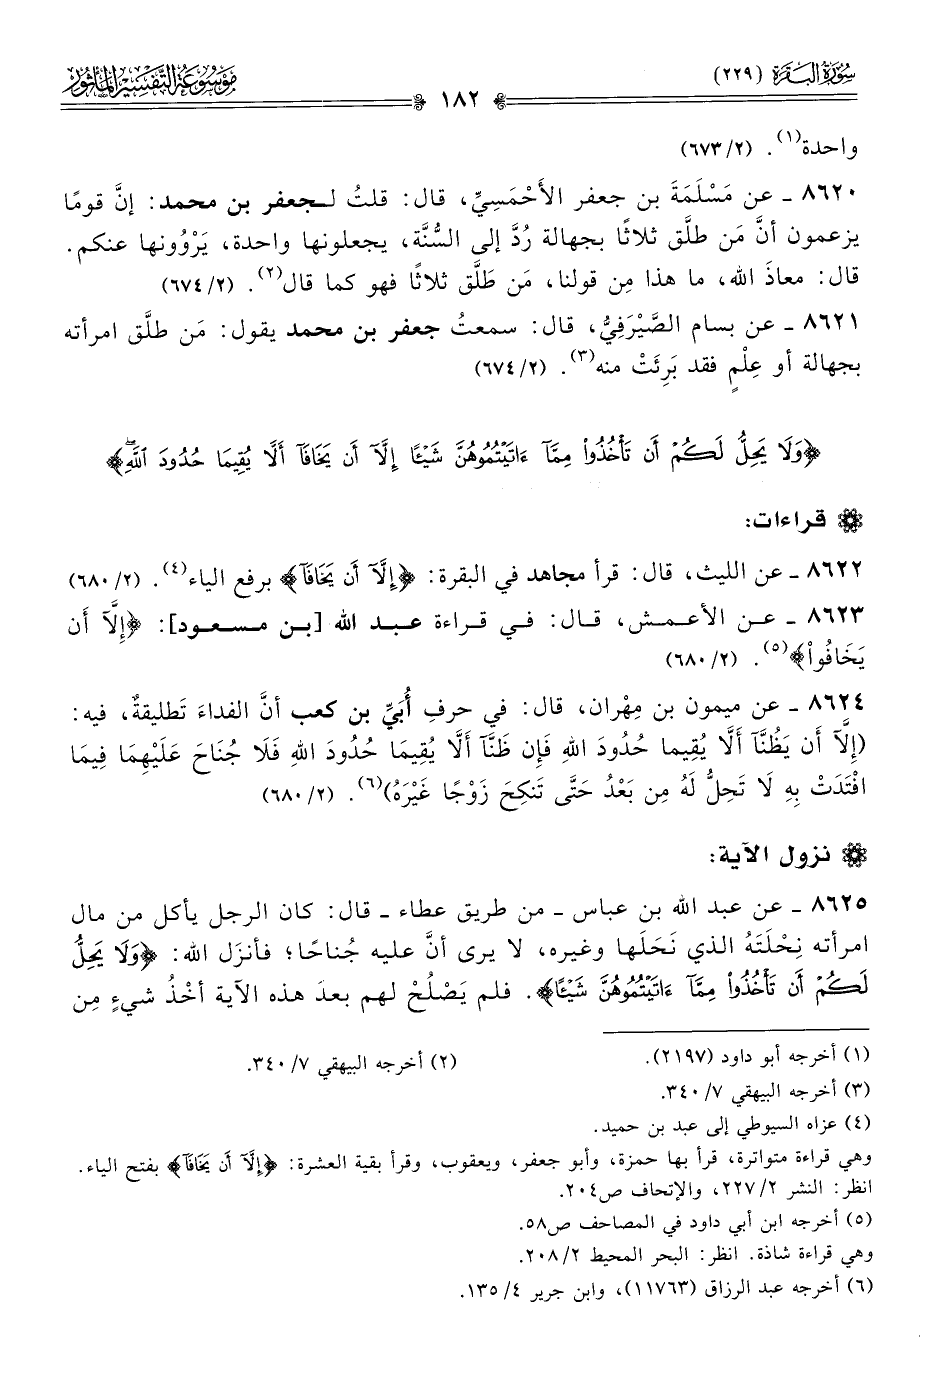 سُورَةُ البَقَرَةِ (٢٢٩)
١٨٢
مَوْسُوعَةُ التَّفْسِيرِ المَأْثُورِ
واحدة(١). (٦٧٣/٢)
٨٦٢٠ ـ عن مَسْلَمَةَ بن جعفر الأَحْمَسِيِّ، قال: قلتُ لـجعفر بن محمد: إنَّ قومًا
يزعمون أنَّ مَن طلَّق ثلاثًا بجهالة رُدَّ إلى السُّنَّة، يجعلونها واحدة، يَرْوُونها عنكم.
قال: معاذَ الله، ما هذا مِن قولنا، مَن طَلَّق ثلاثًا فهو كما قال(٢). (٦٧٤/٢)
٨٦٢١ ـ عن بسام الصَّيْرَفِيُّ، قال: سمعتُ جعفر بن محمد يقول: مَن طلَّق امرأته
بجهالة أو عِلْمٍ فقد بَرِئَتْ منه(٣). (٦٧٤/٢)
﴿وَلَا يَحِلُّ لَكُمْ أَن تَأْخُذُواْ مِمَّآ ءَاتَيْتُمُوهُنَّ شَيْـًٔا إِلَّآ أَن يَخَافَآ أَلَّا يُقِيمَا حُدُودَ ٱللَّهِۖ﴾
قراءات:
٨٦٢٢ ـ عن الليث، قال: قرأ مجاهد في البقرة: ﴿إِلَّآ أَن يَخَافَآ﴾ برفع الياء(٤). (٦٨٠/٢)
٨٦٢٣ ـ عـن الأعـمـش، قـال: فـي قـراءة عـبـد الله [بـن مـسـعـود]: ﴿إِلَّآ أَن
يَخَافُواْ﴾(٥). (٦٨٠/٢)
٨٦٢٤ ـ عن ميمون بن مِهْران، قال: في حرفِ أُبَيِّ بن كعب أنَّ الفداءَ تَطليقةٌ، فيه:
(إِلَّآ أَن يَظُنَّآ أَلَّا يُقِيما حُدُودَ اللهِ فَإِن ظَنَّآ أَلَّا يُقِيمَا حُدُودَ اللهِ فَلَا جُنَاحَ عَلَيْهِمَا فِيمَا
افْتَدَتْ بِهِ لَا تَحِلُّ لَهُ مِن بَعْدُ حَتَّى تَنكِحَ زَوْجًا غَيْرَهُ)(٦). (٦٨٠/٢)
نزول الآية:
٨٦٢٥ ـ عن عبد الله بن عباس ـ من طريق عطاء ـ قال: كان الرجل يأكل من مال
امرأته نِحْلَتَهُ الذي نَحَلَها وغيره، لا يرى أنَّ عليه جُناحًا؛ فأنزَل الله: ﴿وَلَا يَحِلُّ
لَكُمْ أَن تَأْخُذُواْ مِمَّآ ءَاتَيْتُمُوهُنَّ شَيْـًٔا﴾. فلم يَصْلُحْ لهم بعدَ هذه الآية أخْذُ شيءٍ مِن
(١) أخرجه أبو داود (٢١٩٧).
(٢) أخرجه البيهقي ٧/ ٣٤٠.
(٣) أخرجه البيهقي ٧/ ٣٤٠.
(٤) عزاه السيوطي إلى عبد بن حميد.
وهي قراءة متواترة، قرأ بها حمزة، وأبو جعفر، ويعقوب، وقرأ بقية العشرة: ﴿إِلَّآ أَن يَخَافَآ﴾ بفتح الياء.
انظر: النشر ٢/ ٢٢٧، والإتحاف ص٢٠٤.
(٥) أخرجه ابن أبي داود في المصاحف ص٥٨.
وهي قراءة شاذة. انظر: البحر المحيط ٢/ ٢٠٨.
(٦) أخرجه عبد الرزاق (١١٧٦٣)، وابن جرير ٤/ ١٣٥.